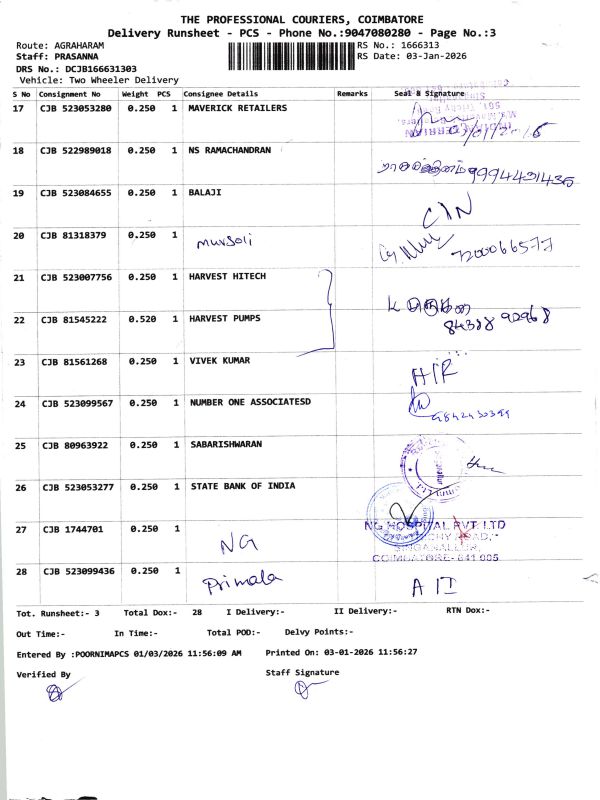 THE PROFESSIONAL COURIERS, COIMBATORE
Delivery Runsheet - PCS - Phone No.:9047080280 - Page No.:3
Route: AGRAHARAM
RS No.: 1666313
Staff: PRASANNA
RS Date: 03-Jan-2026
DRS No.: DCJB166631303
Vehicle: Two Wheeler Delivery
S No Consignment No Weight PCS Consignee Details Remarks Seal & Signature
17 CJB 523053280 0.250 1 MAVERICK RETAILERS
18 CJB 522989018 0.250 1 NS RAMACHANDRAN 9994431435
19 CJB 523084655 0.250 1 BALAJI
20 CJB 81318379 0.250 1 mursoli 7200066577
21 CJB 523007756 0.250 1 HARVEST HITECH
22 CJB 81545222 0.520 1 HARVEST PUMPS 84388 92968
23 CJB 81561268 0.250 1 VIVEK KUMAR H/R
24 CJB 523099567 0.250 1 NUMBER ONE ASSOCIATESD
25 CJB 80963922 0.250 1 SABARISHWARAN
26 CJB 523053277 0.250 1 STATE BANK OF INDIA
27 CJB 1744701 0.250 1 NG NG HOSPITAL PVT. LTD
SINGANALLUR,
COIMBATORE- 641 005
28 CJB 523099436 0.250 1 Primala
Tot. Runsheet:- 3 Total Dox:- 28 I Delivery:- II Delivery:- RTN Dox:-
Out Time:- In Time:- Total POD:- Delvy Points:-
Entered By :POORNIMAPCS 01/03/2026 11:56:09 AM Printed On: 03-01-2026 11:56:27
Verified By Staff Signature